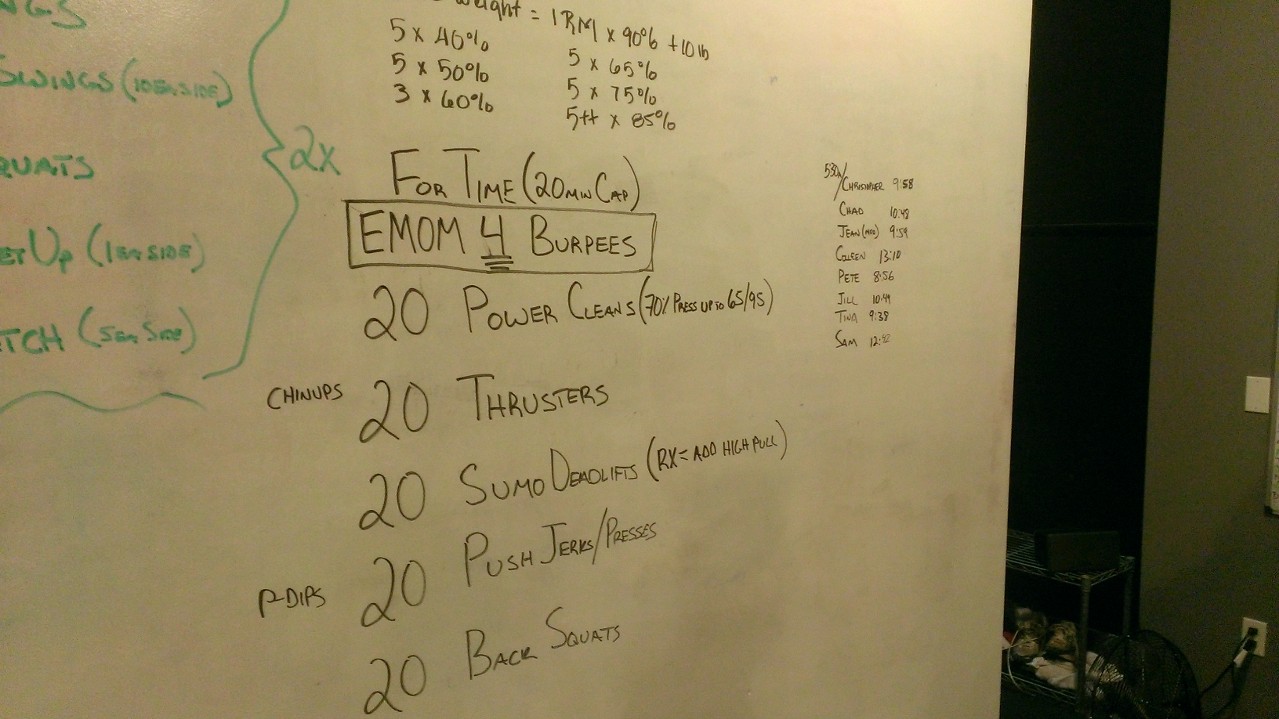 NGS
SWINGS (10EA.SIDE)
QUATS
ET UP (1EA.SIDE)
TCH (5EA.SIDE)
2X
Weight = 1RM x 90% +10lb
5 x 40%
5 x 50%
3 x 60%
5 x 65%
5 x 75%
5++ x 85%
FOR TIME (20 MIN CAP)
EMOM 4 BURPEES
20 POWER CLEANS (70% PRESS UP TO 65/95)
CHINUPS 20 THRUSTERS
20 SUMO DEADLIFTS (RX= ADD HIGH PULL)
P-DIPS 20 PUSH JERKS/PRESSES
20 BACK SQUATS
530a/
CHRISTOPHER 9:58
CHAD 10:48
JEAN 9:59
COLEEN 13:10
PETE 8:56
JILL 10:49
TINA 9:38
SAM 12:42